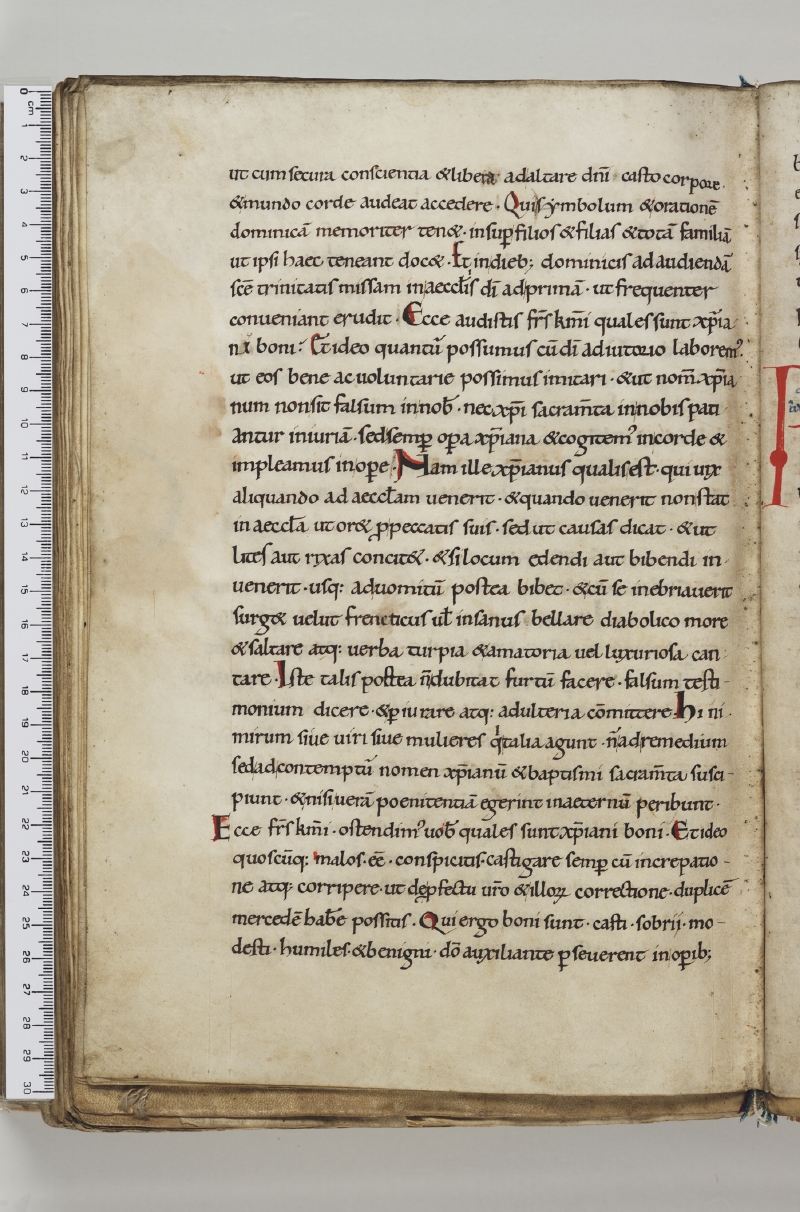 ut cum secura conscientia & libera ad altare dnī casto corpore
& mundo corde audeat accedere · Qui sẏmbolum & orationē
dominicā memoriter ten& · insup filios & filias & totā familiā
ut ipsi haec teneant doc& · Et in dieb; dominicis ad audiendā
scē trinitatis missam in aecclīs dī ad primā · ut frequenter
conueniant erudit · Ecce audistis frs kmi quales sunt xpīa
ni boni · Et ideo quantū possumus cū dī adiutorio laborem'
ut eos bene ac uoluntarie possimus imitari · & ut nom̄ xpīa
num non sit falsum in nob̄ · nec xpī sacram̄ta in nobis pati
antur iniuriā · sed semp opa xpīana & cogitem' in corde &
impleamus in ope · Nam ille xpīanus qualis est · qui uix
aliquando ad aecclam uenerit · & quando uenerit non stat
in aeccła ut or& p peccatis suis · sed ut causas dicat · & ut
lites aut rixas concit& · & si locum edendi aut bibendi in
uenerit · usq: ad uomitū postea bibet · & cū se inebriauerit
surg& uelut freneticus uł insanus bellare diabolico more
& saltare atq: uerba turpia & amatoria uel luxuriosa can
tare · Iste talis postea n̄ dubitat furtū facere · falsum testi-
monium dicere · & piurare atq: adulteria cōmittere · hi ni
mirum siue uiri siue mulieres q̇ talia agunt · n̄ ad remedium
sed ad contemptū nomen xpīanū & baptismi sacram̄ta susci-
piunt · & nisi uerā poenitentiā egerint in aeternū peribunt ·
Ecce frs kmi · ostendim' uob̄ quales sunt xpīani boni · Et ideo
quoscūq: malos · ēē · conspicitis · castigare semp cū increpatio-
ne atq: corripere · ut de pfectu uro & illoꝝ correctione · duplicē
mercedē habēe possitis · Qui ergo boni sunt · casti · sobrij · mo-
desti · humiles · & benigni · dō auxiliante pseuerent in opib;